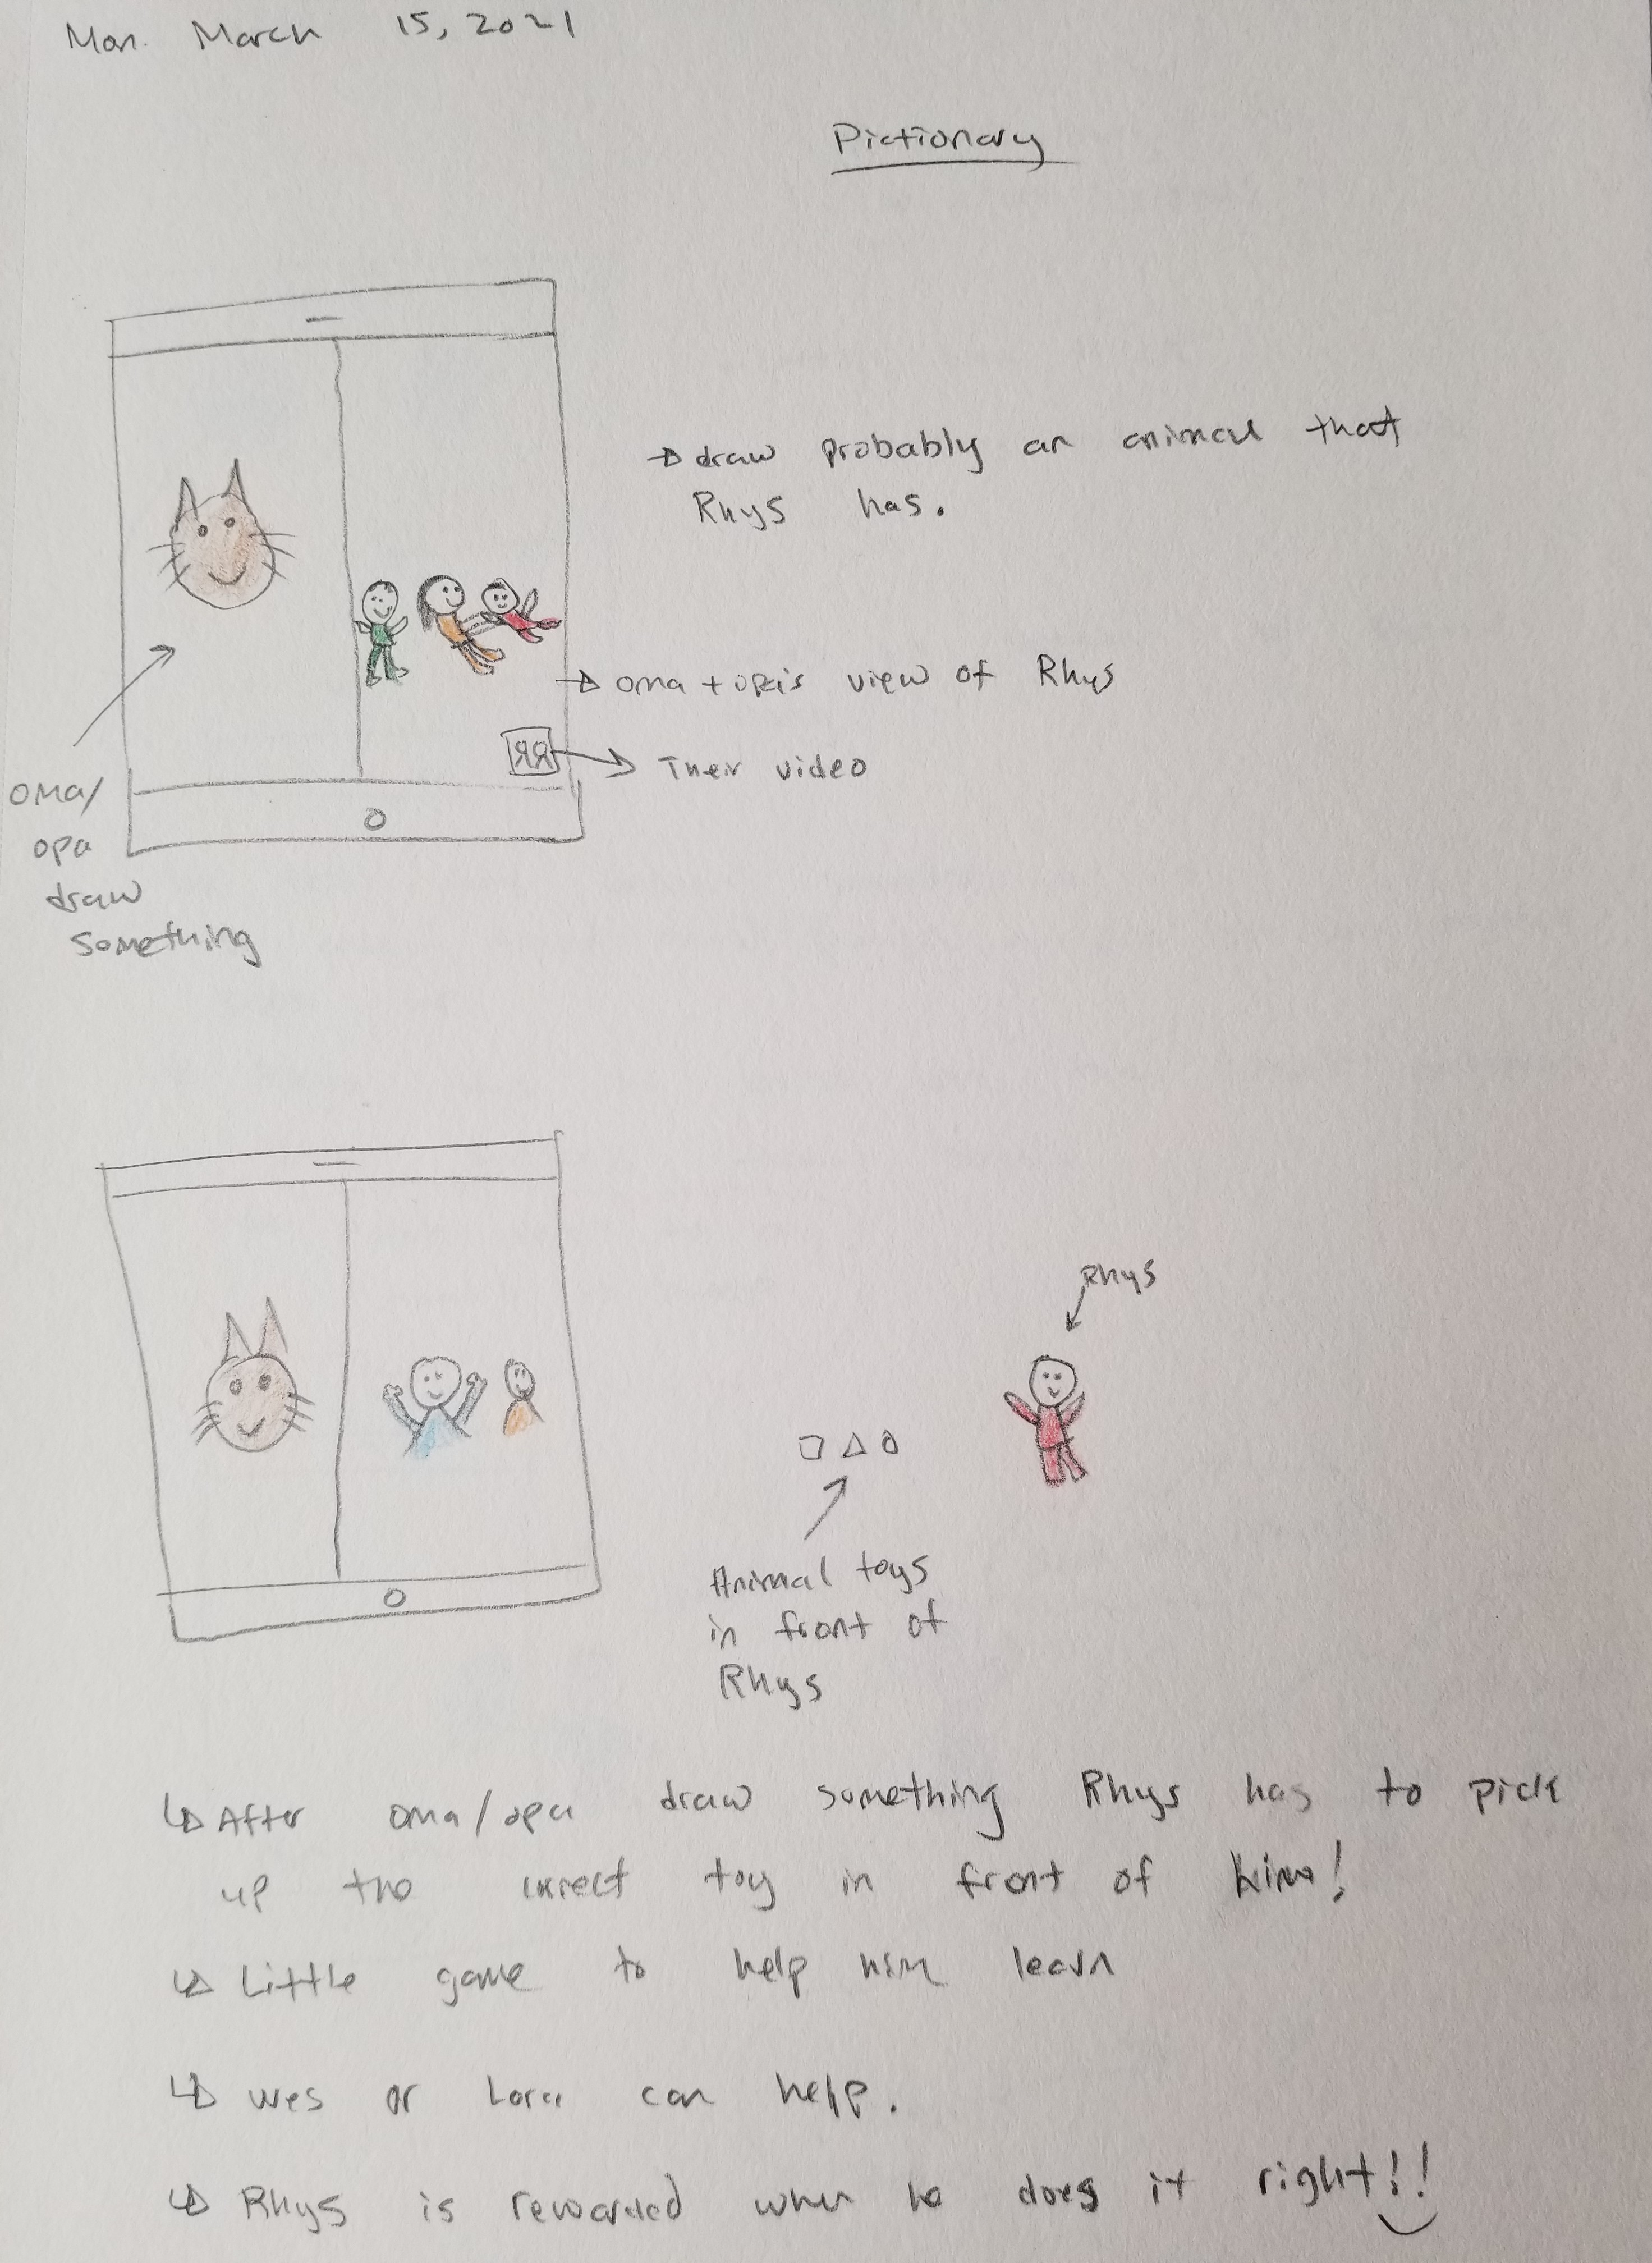 Mon. March 15, 2021
Pictionary
draw probably an animal that
Rhys has.
oma + opa's view of Rhys
Their video
oma/
opa
draw
something
Rhys
Animal toys
in front of
Rhys
After oma/opa draw something Rhys has to pick
up the correct toy in front of him!
Little game to help him learn
Wes or Lora can help.
Rhys is rewarded when he does it right!!